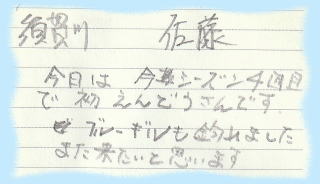 須賀川 佐藤
今日は 今年シーズン4回目
で初えんどうさんです。
ブルーギルも釣れました
また来たいと思います